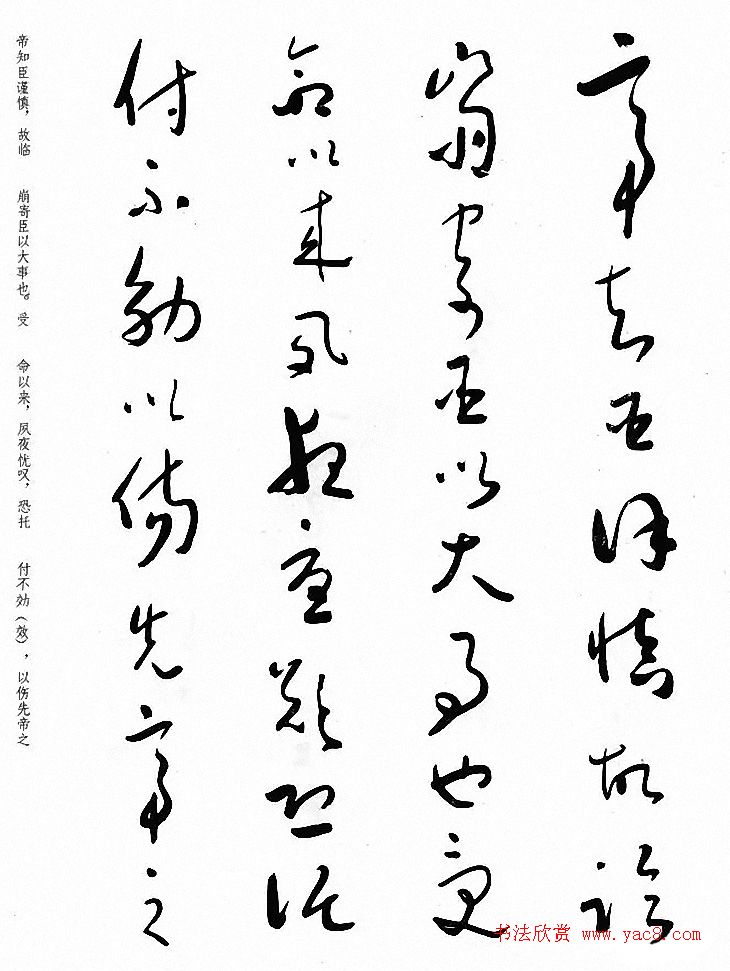 帝知臣谨慎故临
崩寄臣以大事也受
命以来夙夜忧叹恐托
付不効以伤先帝之
帝知臣谨慎，故临　崩寄臣以大事也。受　命以来，夙夜忧叹，恐托　付不効（效），以伤先帝之
书法欣赏 www.yac8.com